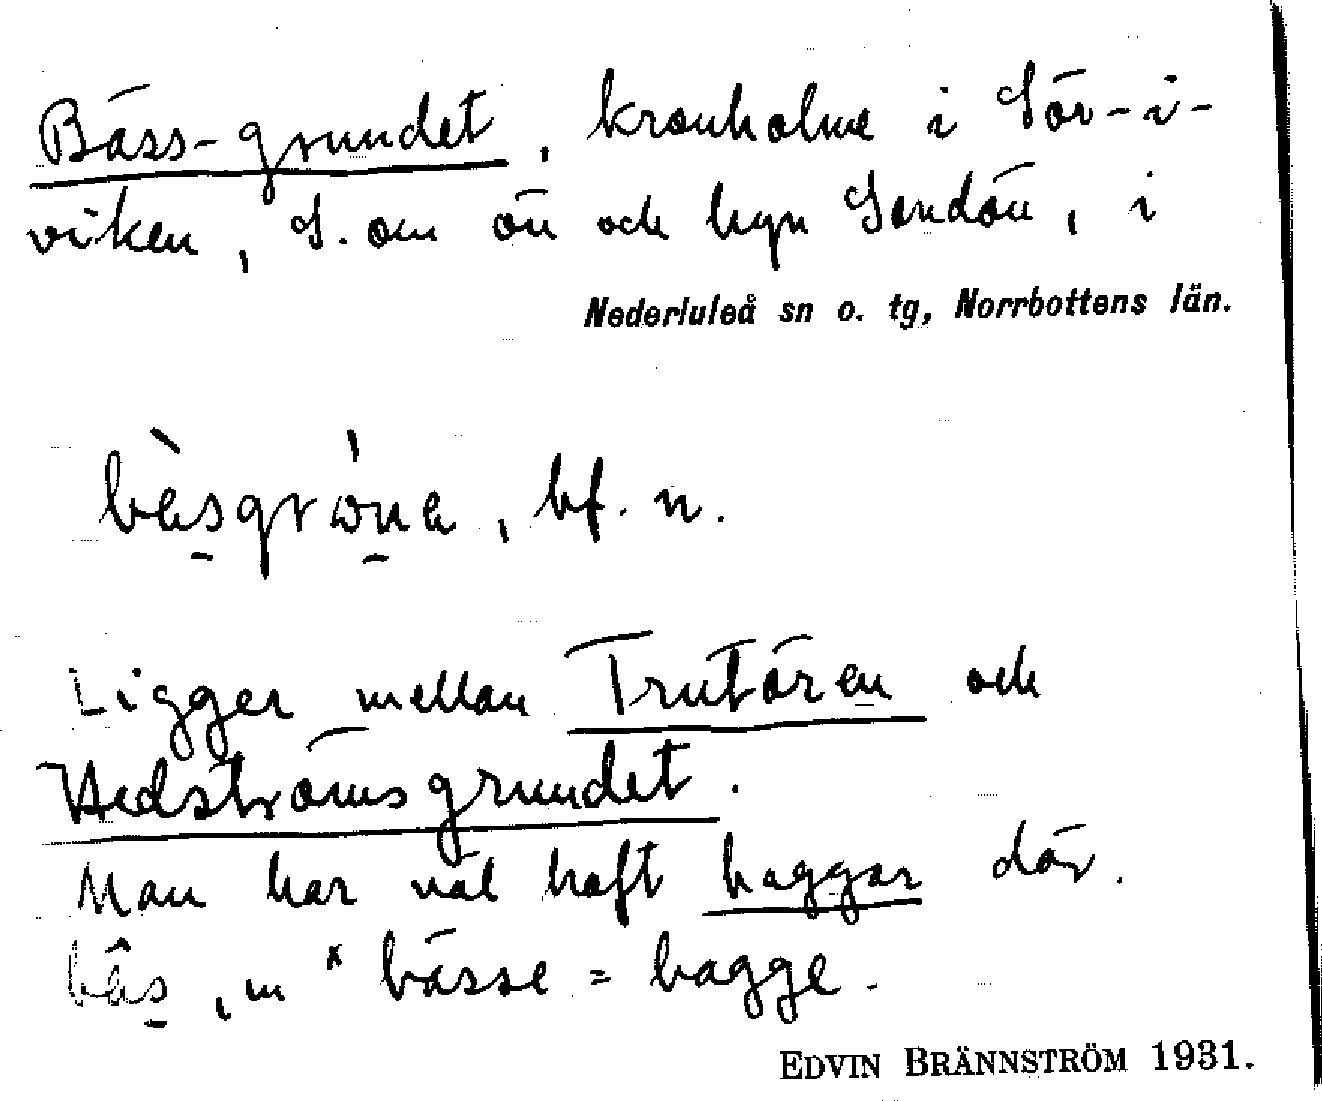 Bäss-grundet, kronholme i Sör-i-
viken, S. om ön och byn Sandön, i
Nederluleå sn o. tg, Norrbottens län.
bf. n.
Ligger mellan Trutören och
Hedströmsgrundet.
Man har väl haft baggar där.
m * bässe = bagge.
EDVIN BRÄNNSTRÖM 1931.